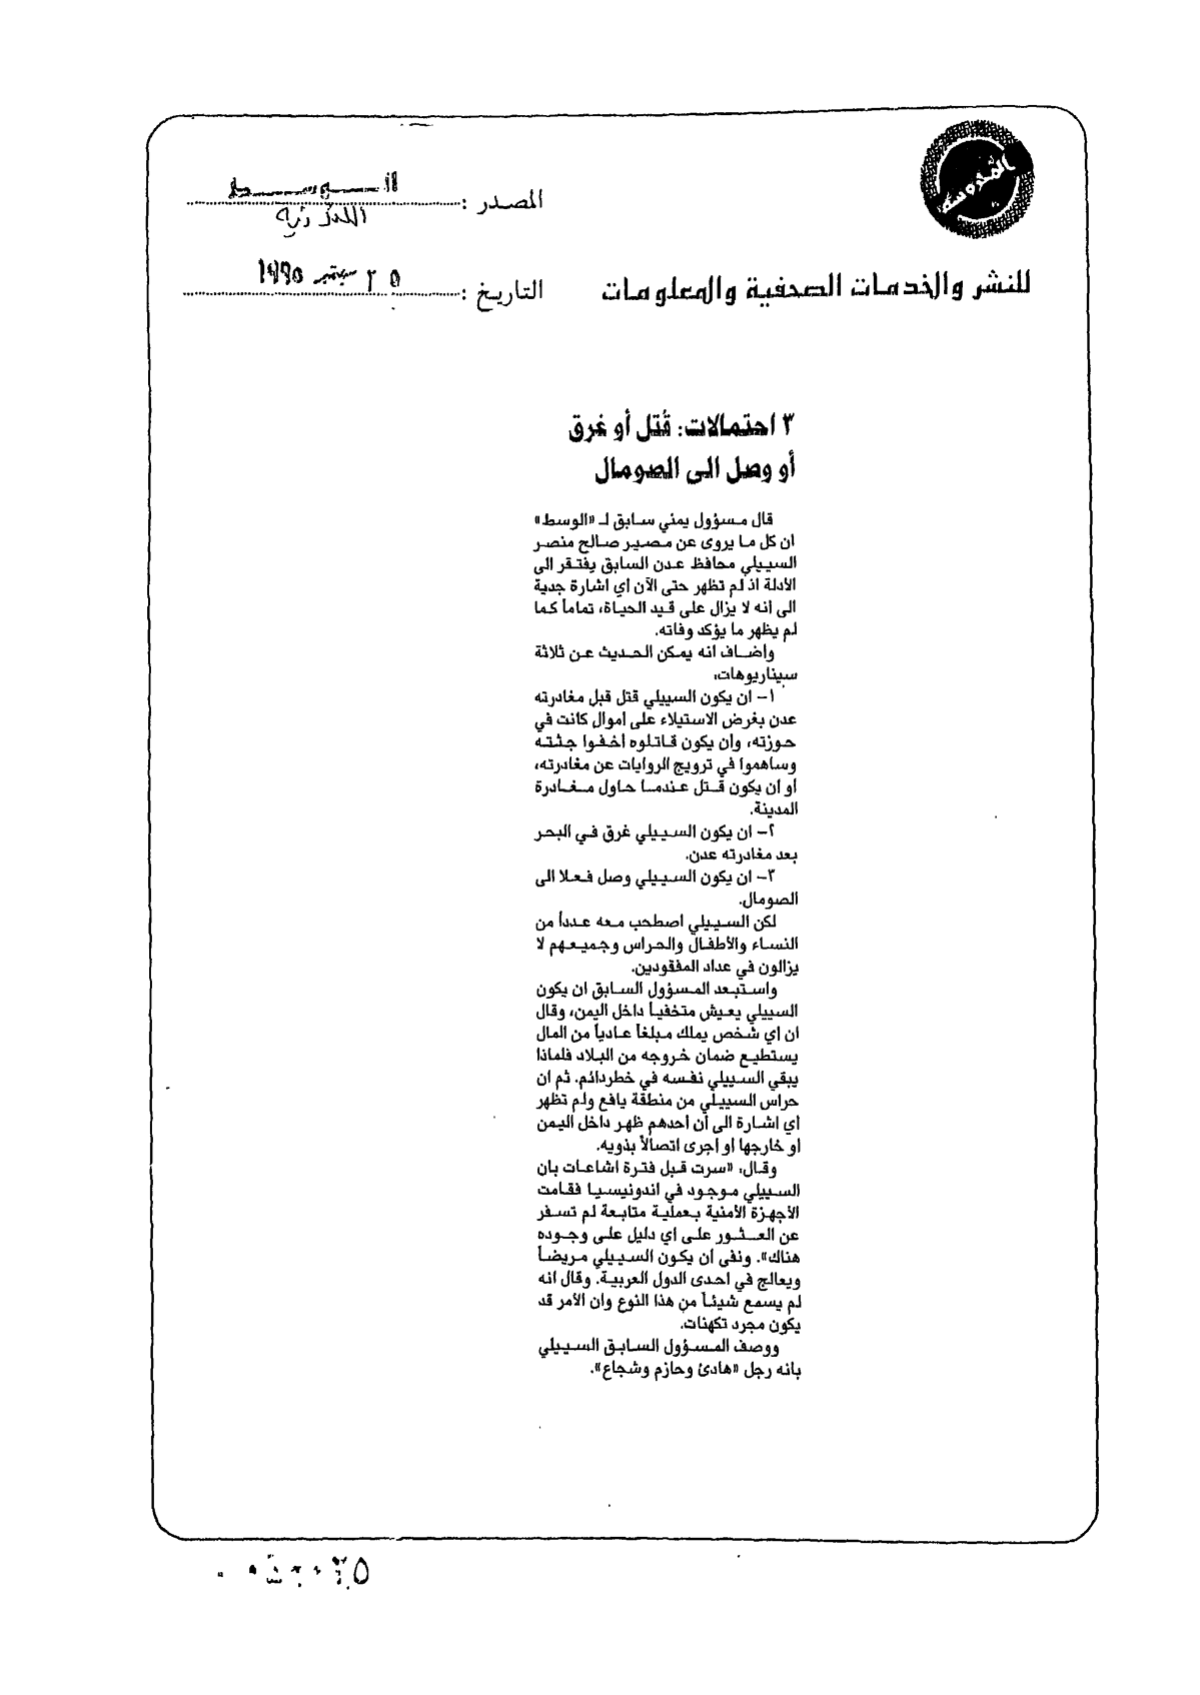 المدوسة
المصدر : الوسط
اللندنية
للنشر والخدمات الصحفية والمعلومات
التاريخ : ٢٥ سبتمبر ١٩٩٥
٣ احتمالات: قُتل أو غرق
أو وصل الى الصومال
قال مسؤول يمني سابق لـ «الوسط»
ان كل ما يروى عن مصير صالح منصر
السييلي محافظ عدن السابق يفتقر الى
الأدلة اذ لم تظهر حتى الآن اي اشارة جدية
الى انه لا يزال على قيد الحياة، تماماً كما
لم يظهر ما يؤكد وفاته.
واضاف انه يمكن الحديث عن ثلاثة
سيناريوهات:
١- ان يكون السييلي قتل قبل مغادرته
عدن بغرض الاستيلاء على اموال كانت في
حوزته، وان يكون قاتلوه اخفوا جثته
وساهموا في ترويج الروايات عن مغادرته،
او ان يكون قتل عندما حاول مغادرة
المدينة.
٢- ان يكون السييلي غرق في البحر
بعد مغادرته عدن.
٣- ان يكون السييلي وصل فعلا الى
الصومال.
لكن السييلي اصطحب معه عدداً من
النساء والأطفال والحراس وجميعهم لا
يزالون في عداد المفقودين.
واستبعد المسؤول السابق ان يكون
السييلي يعيش متخفياً داخل اليمن، وقال
ان اي شخص يملك مبلغاً عادياً من المال
يستطيع ضمان خروجه من البلاد فلماذا
يبقي السييلي نفسه في خطر دائم. ثم ان
حراس السييلي من منطقة يافع ولم تظهر
اي اشارة الى ان احدهم ظهر داخل اليمن
او خارجها او اجرى اتصالاً بذويه.
وقال: «سرت قبل فترة اشاعات بان
السييلي موجود في اندونيسيا فقامت
الأجهزة الأمنية بعملية متابعة لم تسفر
عن العثور على اي دليل على وجوده
هناك». ونفى ان يكون السييلي مريضاً
ويعالج في احدى الدول العربية. وقال انه
لم يسمع شيئاً من هذا النوع وان الأمر قد
يكون مجرد تكهنات.
ووصف المسؤول السابق السييلي
بانه رجل «هادئ وحازم وشجاع».